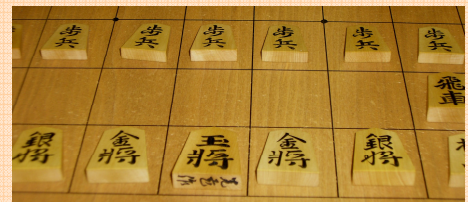 歩兵 歩兵 歩兵 歩兵 歩兵 歩兵
飛車
銀将 金将 玉将 金将 銀将